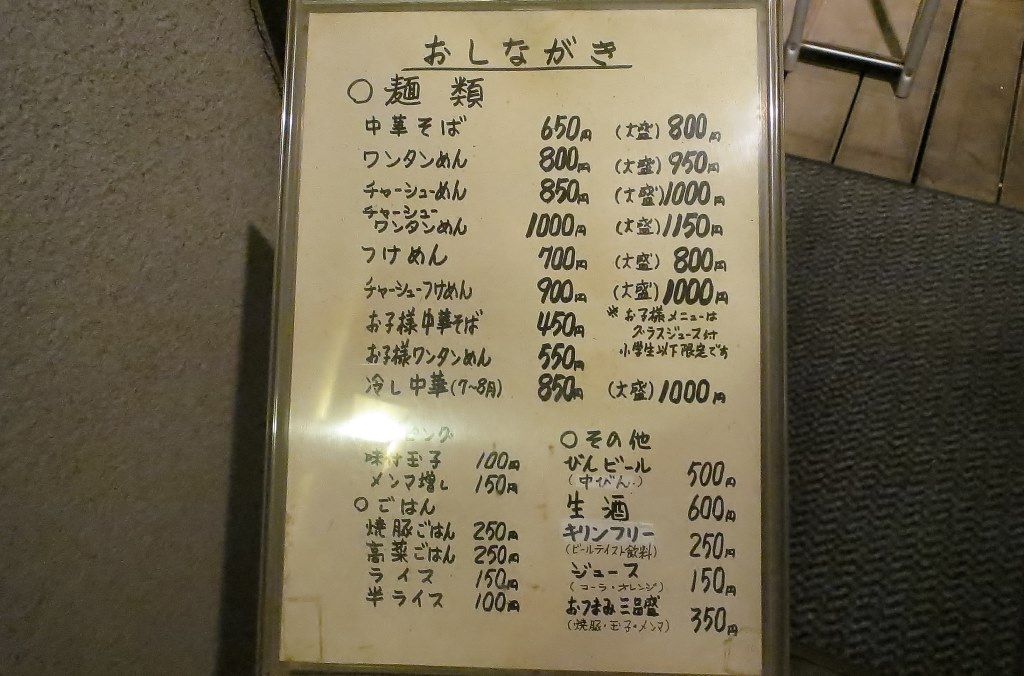 おしながき
○麺類
中華そば 650円 (大盛)800円
ワンタンめん 800円 (大盛)950円
チャーシューめん 850円 (大盛)1000円
チャーシュー
ワンタンめん 1000円 (大盛)1150円
つけめん 700円 (大盛)800円
チャーシューつけめん 900円 (大盛)1000円
お子様中華そば 450円
お子様ワンタンめん 550円
※お子様メニューは
グラスジュース付
小学生以下限定です
冷し中華(7~8月) 850円 (大盛)1000円
ピング
味付玉子 100円
メンマ増し 150円
○ごはん
焼豚ごはん 250円
高菜ごはん 250円
ライス 150円
半ライス 100円
○その他
びんビール 500円
(中びん)
生酒 600円
キリンフリー 250円
(ビールテイスト飲料)
ジュース 150円
(コーラ・オレンジ)
おつまみ三品盛 350円
(焼豚・玉子・メンマ)